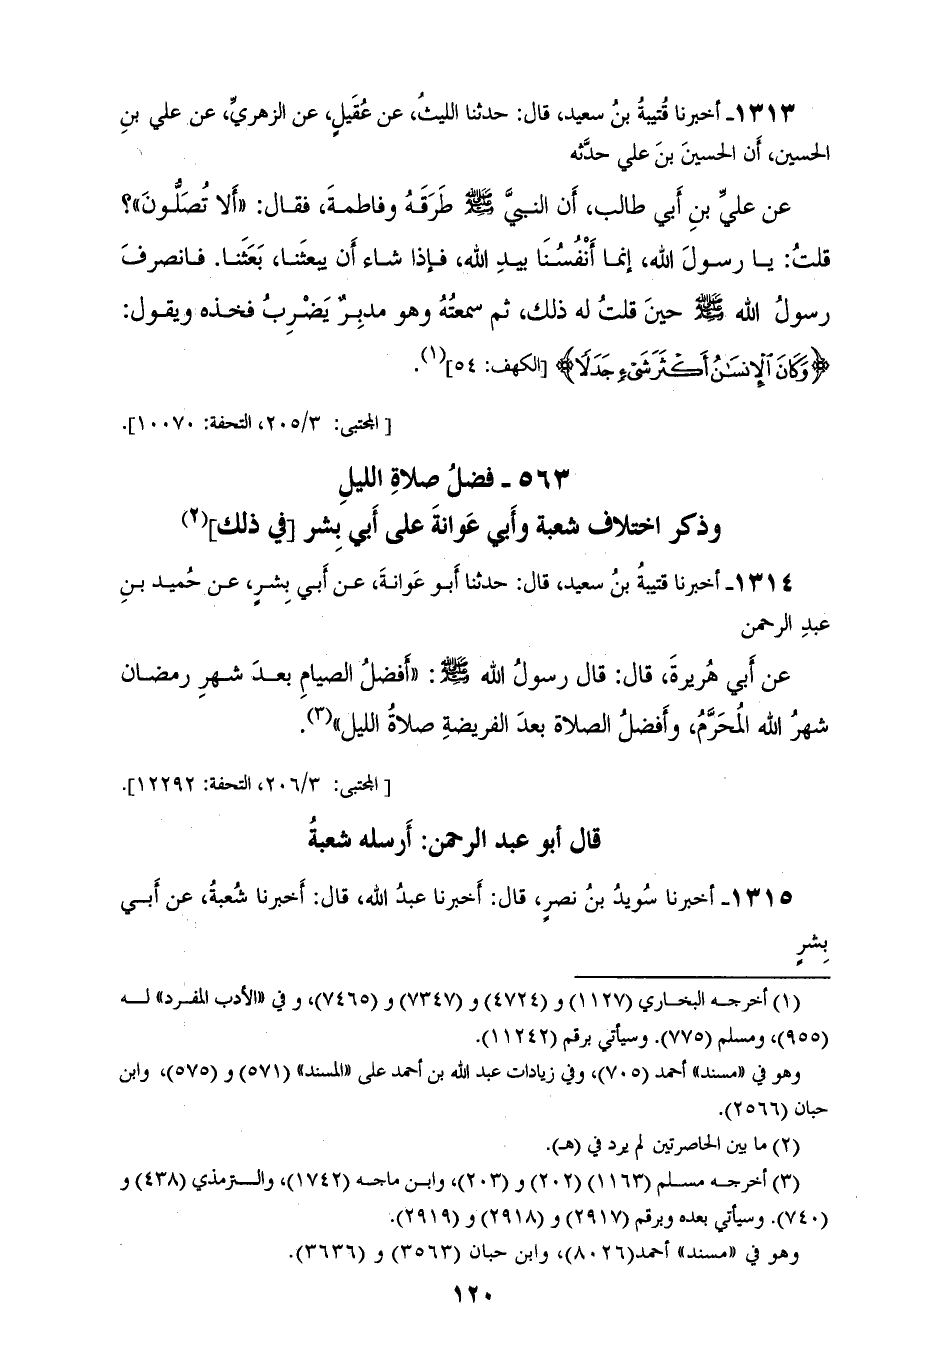 ١٣١٣ـ أخبرنا قُتيبةُ بنُ سعيد، قال: حدثنا الليثُ، عن عُقَيلٍ، عن الزهريِّ، عن علي بنِ
الحسين، أن الحسينَ بنَ علي حدَّثه
عن عليِّ بنِ أبي طالب، أن النبيَّ ﷺ طَرَقَهُ وفاطمةَ، فقال: «ألا تُصَلُّونَ»؟
قلتُ: يا رسولَ الله، إنما أَنْفُسُنَا بيدِ الله، فإذا شاء أن يبعثَنا، بَعَثَنا. فانصرفَ
رسولُ الله ﷺ حينَ قلتُ له ذلك، ثم سمعتُهُ وهو مدبِرٌ يَضْرِبُ فخذه ويقول:
﴿وَكَانَ ٱلْإِنسَٰنُ أَكْثَرَ شَىْءٍ جَدَلًا﴾ [الكهف: ٥٤](١).
[المجتبى: ٢٠٥/٣، التحفة: ١٠٠٧٠].
٥٦٣ ـ فضلُ صلاةِ الليلِ
وذكر اختلاف شعبة وأبي عَوانةَ على أبي بِشر [في ذلك](٢)
١٣١٤ـ أخبرنا قتيبةُ بنُ سعيد، قال: حدثنا أبو عَوانةَ، عن أبي بِشرٍ، عن حُميد بنِ
عبدِ الرحمن
عن أبي هُريرةَ، قال: قال رسولُ الله ﷺ: «أفضلُ الصيامِ بعدَ شهرِ رمضان
شهرُ الله المُحَرَّمُ، وأفضلُ الصلاة بعدَ الفريضةِ صلاةُ الليل»(٣).
[المجتبى: ٢٠٦/٣، التحفة: ١٢٢٩٢].
قال أبو عبد الرحمن: أرسله شعبةُ
١٣١٥ـ أخبرنا سُويدُ بنُ نصرٍ، قال: أخبرنا عبدُ الله، قال: أخبرنا شُعبةُ، عن أبي
بِشرٍ
(١) أخرجه البخاري (١١٢٧) و (٤٧٢٤) و (٧٣٤٧) و (٧٤٦٥)، و في «الأدب المفرد» له
(٩٥٥)، ومسلم (٧٧٥). وسيأتي برقم (١١٢٤٢).
وهو في «مسند» أحمد (٧٠٥)، وفي زيادات عبد الله بن أحمد على «المسند» (٥٧١) و (٥٧٥)، وابن
حبان (٢٥٦٦).
(٢) ما بين الحاصرتين لم يرد في (هـ).
(٣) أخرجه مسلم (١١٦٣) (٢٠٢) و (٢٠٣)، وابن ماجه (١٧٤٢)، والترمذي (٤٣٨) و
(٧٤٠). وسيأتي بعده وبرقم (٢٩١٧) و (٢٩١٨) و (٢٩١٩).
وهو في «مسند» أحمد(٨٠٢٦)، وابن حبان (٣٥٦٣) و (٣٦٣٦).
١٢٠